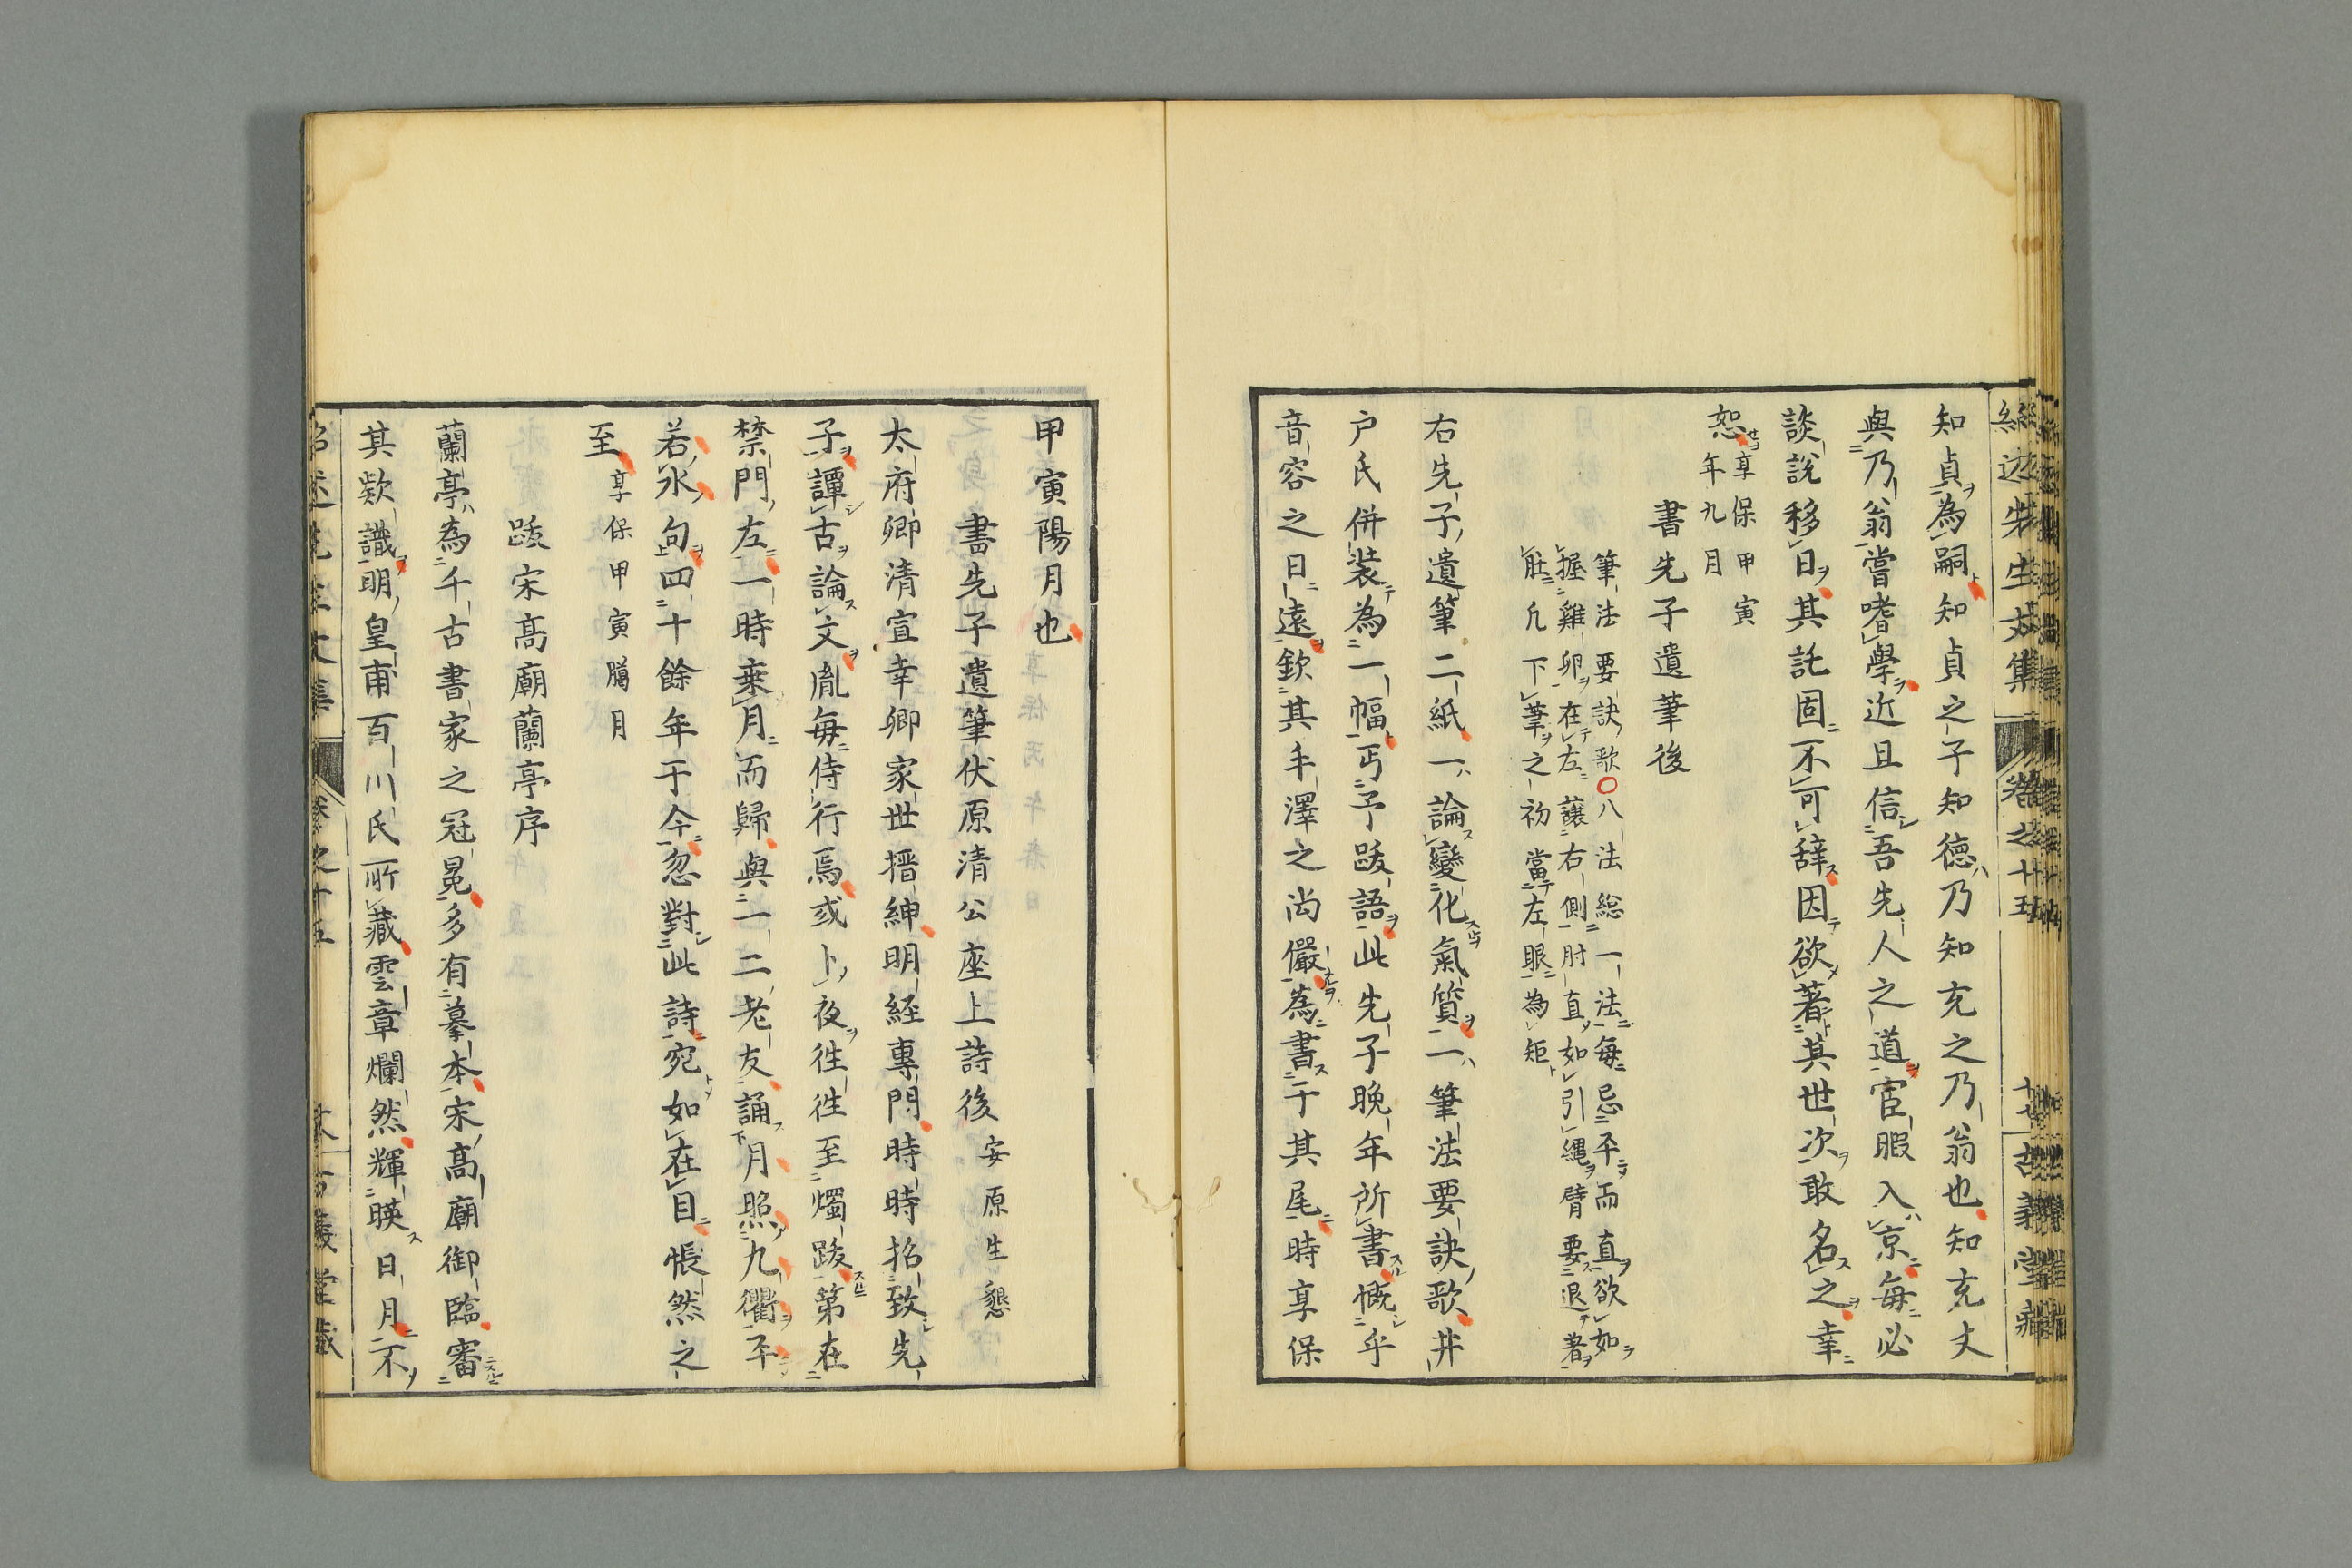 知貞為嗣知貞之子知徳乃知充之乃翁也知充丈
與乃翁嘗嗜學近且信吾先人之道宦暇入京毎必
談說移日其託固不可辞因欲著其世次敢名之幸
恕享保甲寅
年九月
書先子遺筆後
筆法要訣歌○八法総一法毎忌平而直欲如
握雞卵在左讓右側肘直如引縄臂要退著
肚凢下筆之初當左眼為矩
右先子遺筆二紙一論變化氣質一筆法要訣歌井
戸氏併装為一幅丐予跋語此先子晩年所書慨乎
音容之日遠欽其手澤之尚儼為書于其尾時享保
甲寅陽月也
書先子遺筆伏原清公座上詩後 安原生懇
太府卿清宣幸卿家世搢紳明経專門時時招致先
子譚古論文胤毎侍行焉或卜夜徃徃至燭跋第在
禁門左一時乗月而歸與一二老友誦月照九衢平
若水句四十餘年于今忽對此詩宛如在目悵然之
至享保甲寅臈月
跋宋高廟蘭亭序
蘭亭為千古書家之冠冕多有摹本宋高廟御臨審
其欵識明皇甫百川氏所藏雲章爛然輝暎日月不